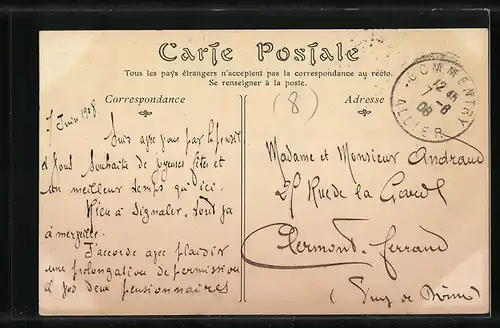 Carte Postale
Tous les pays étrangers n'acceptent pas la correspondance au recto.
Se renseigner à la poste.
Correspondance
Adresse
(8)
COMMENTRY
12 45
7 -6
08
ALLIER
7 Juin 1908
Suis avec vous par la pensée
et vous souhaite de joyeuses fêtes et
un meilleur temps qu'ici.
Rien à signaler. tout va
à merveille.
J'accorde avec plaisir
une prolongation de permission
à vos deux pensionnaires
Madame et Monsieur Andraud
25 Rue de la Gare
Clermont-Ferrand
(Puy de Dôme)